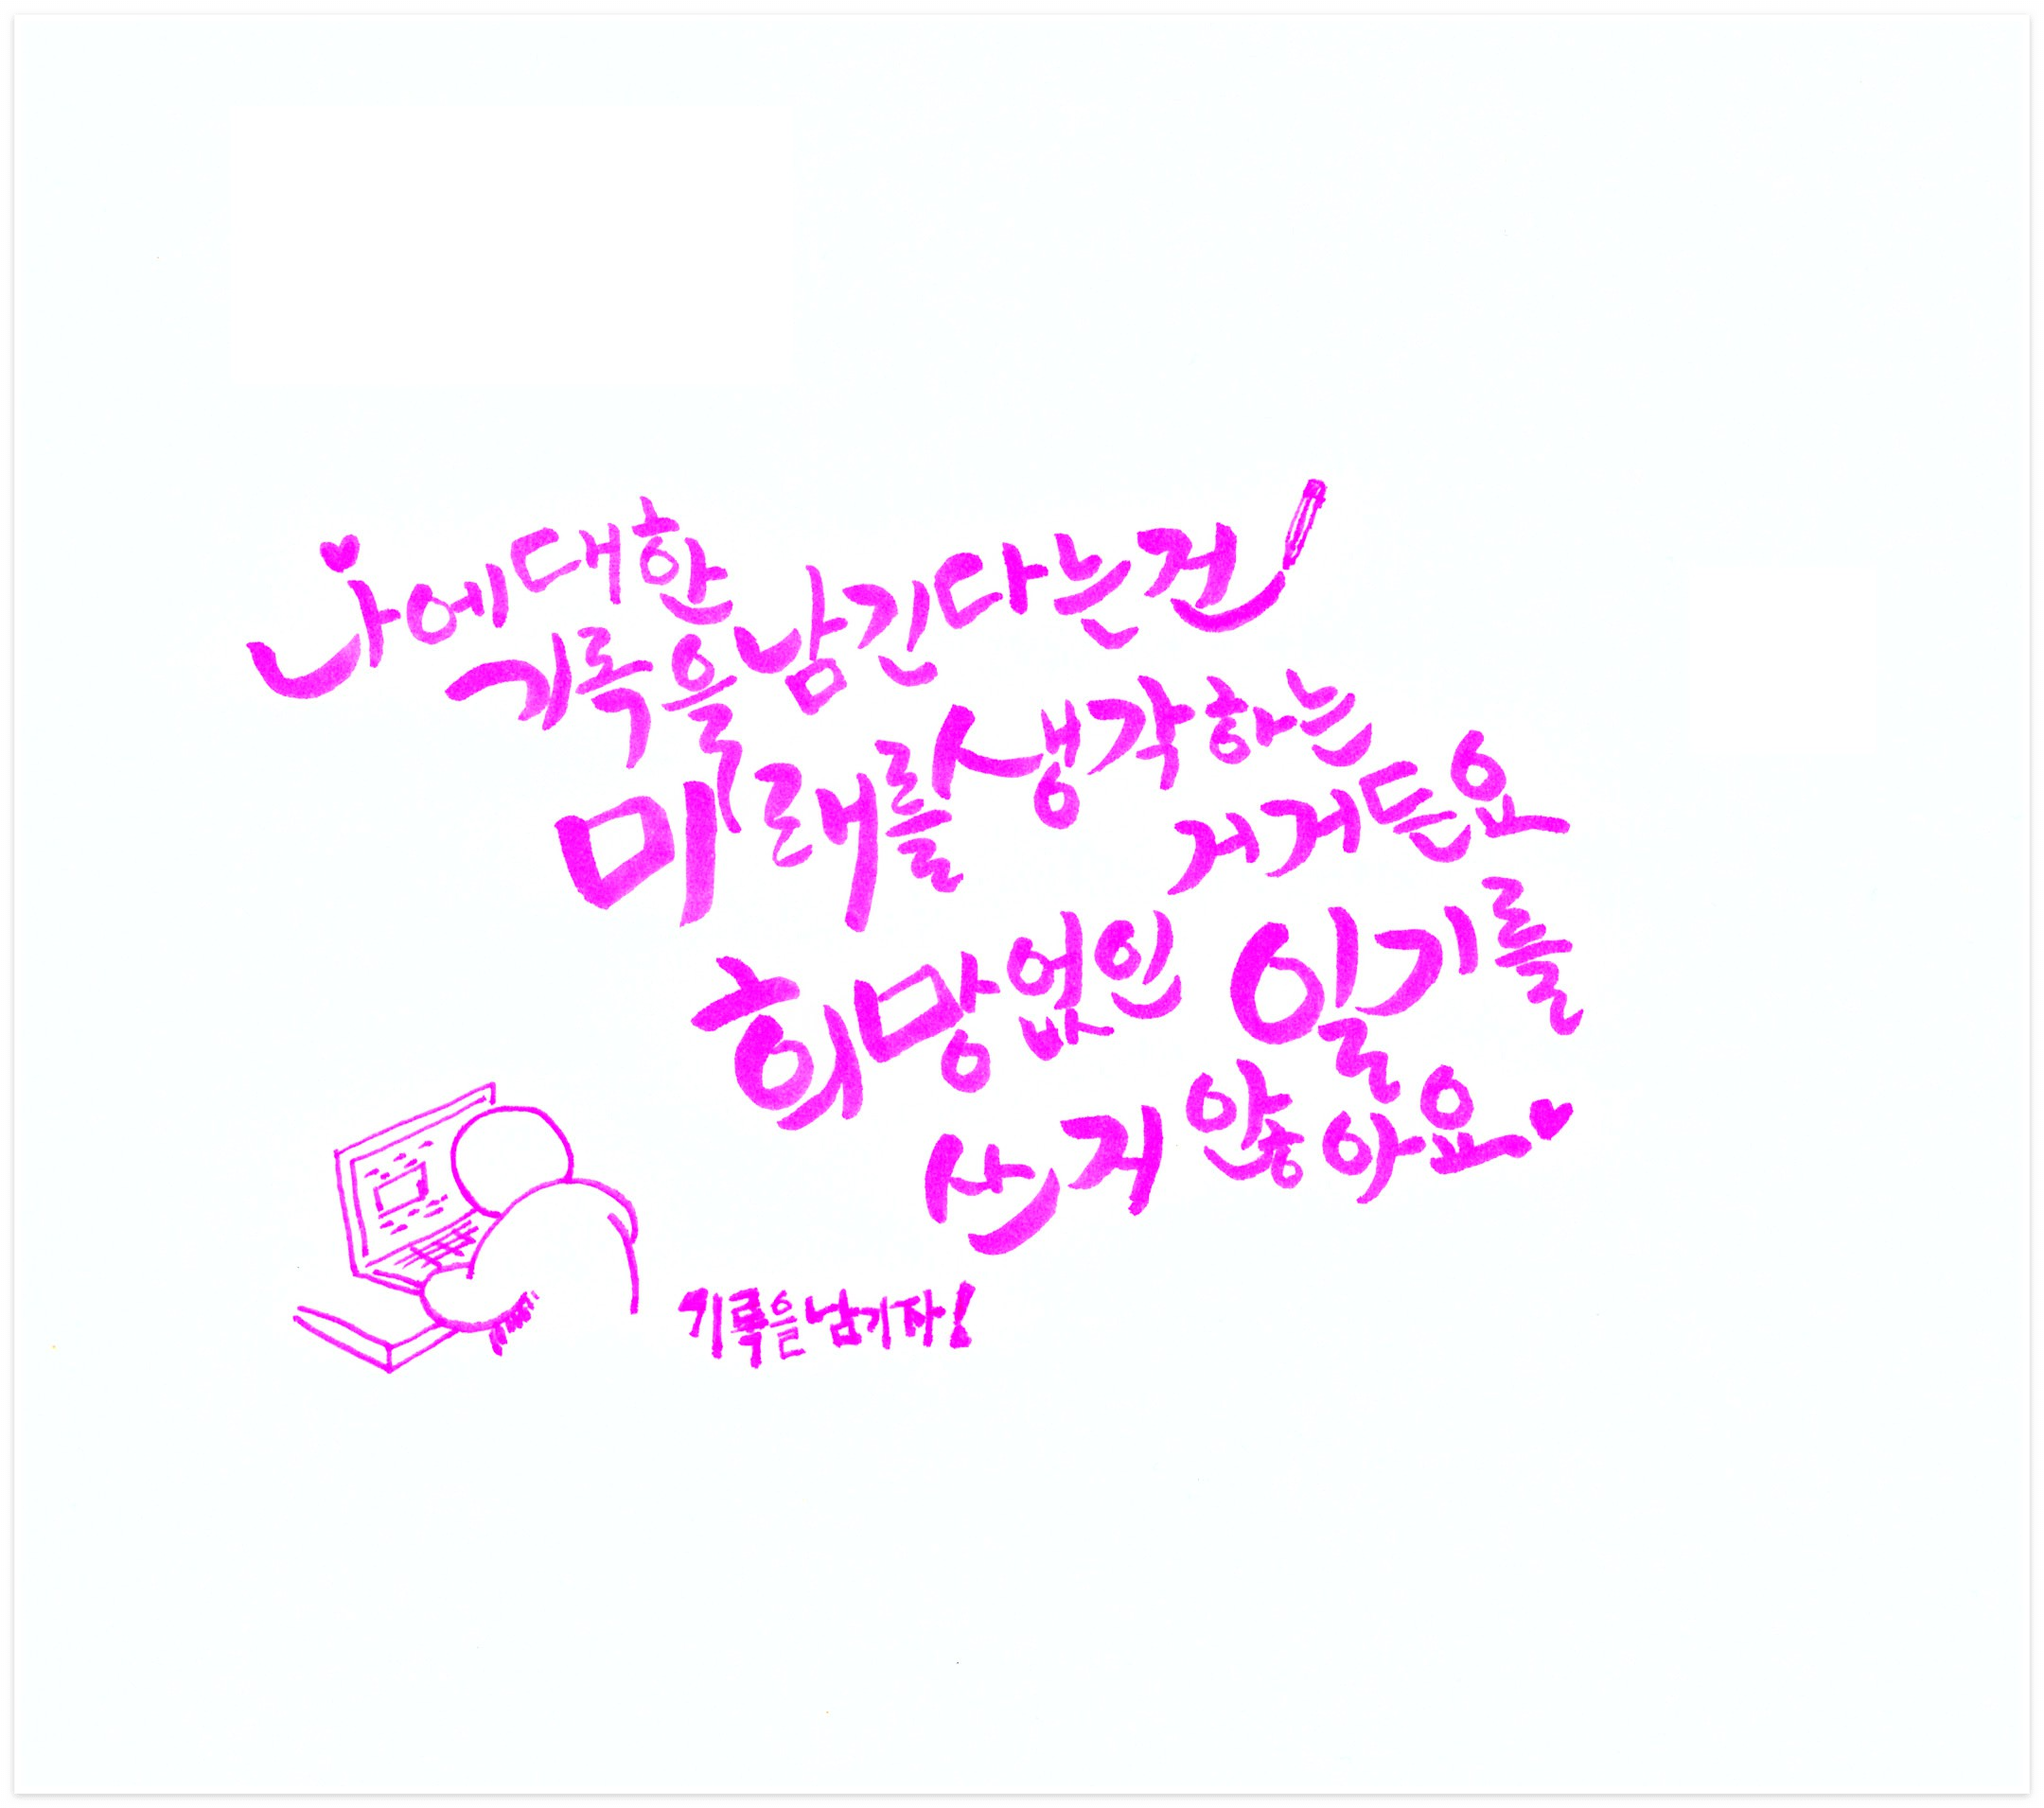 나에 대한
기록을 남긴다는 건
미래를 생각하는
거거든요
희망없인 일기를
쓰지 않아요
기록을 남기자!